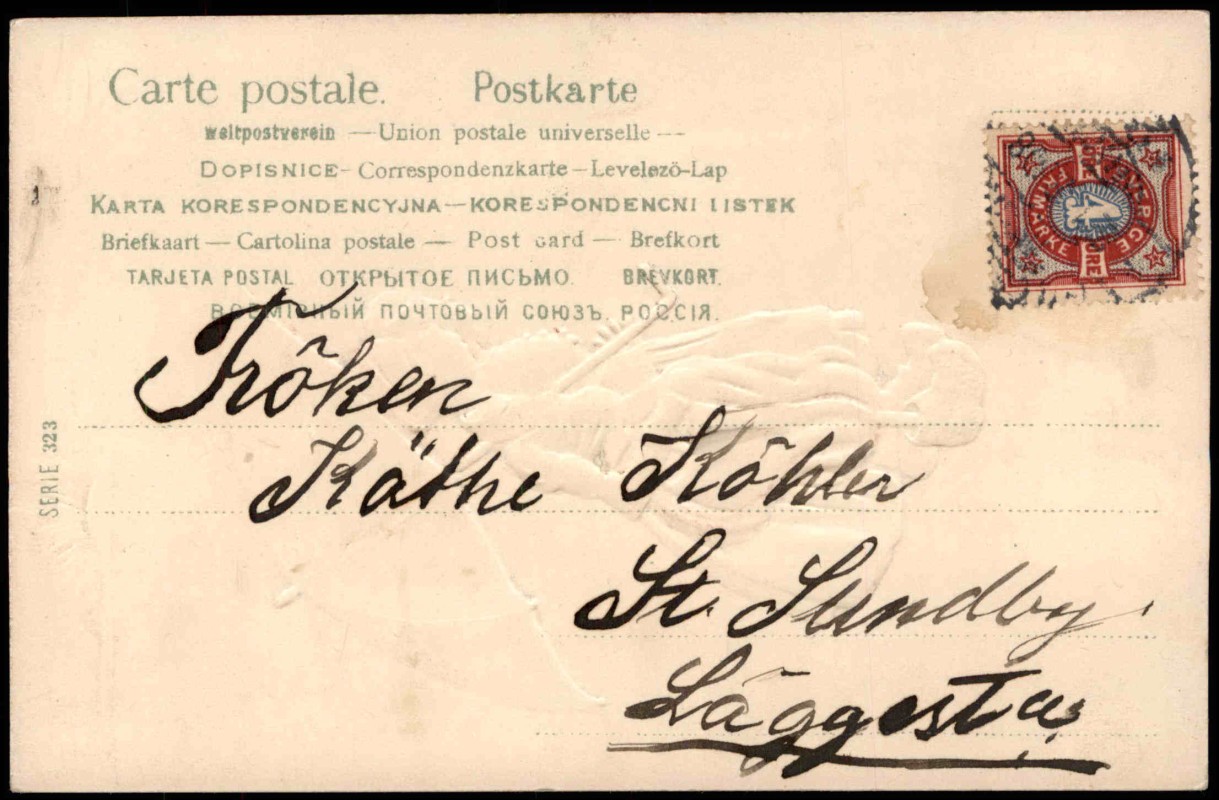 Carte postale. Postkarte
Weltpostverein — Union postale universelle —
DOPISNICE – Correspondenzkarte – Levelező-Lap
KARTA KORESPONDENCYJNA — KORESPONDENCNI LISTEK
Briefkaart — Cartolina postale — Post card — Brefkort
TARJETA POSTAL ОТКРЫТОЕ ПИСЬМО. BREVKORT.
ВСЕМІРНЫЙ ПОЧТОВЫЙ СОЮЗЪ. РОССІЯ.
SVERIGE
FRIMÄRKE
15
ÖRE
Fröken
Käthe Köhler
St. Sundby.
Läggesta
SERIE 323